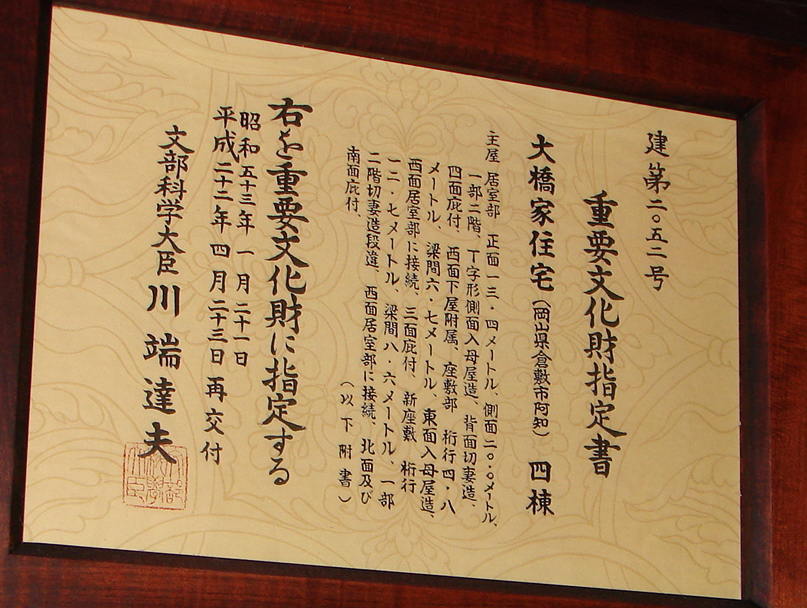 建第二〇五二号
重要文化財指定書
大橋家住宅(岡山県倉敷市阿知) 四棟
主屋 居室部 正面一三・四メートル、側面二〇・〇メートル、
一部二階、丁字形側面入母屋造、背面切妻造、
四面庇付、西面下屋附属、座敷部 桁行四・八
メートル、梁間六・七メートル、東面入母屋造、
西面居室部に接続、三面庇付、新座敷 桁行
一二・七メートル、梁間八・六メートル、一部
二階切妻造段違、西面居室部に接続、北面及び
南面庇付、
(以下附書)
右を重要文化財に指定する
昭和五十三年一月二十一日
平成二十二年四月二十三日 再交付
文部科学大臣 川端達夫